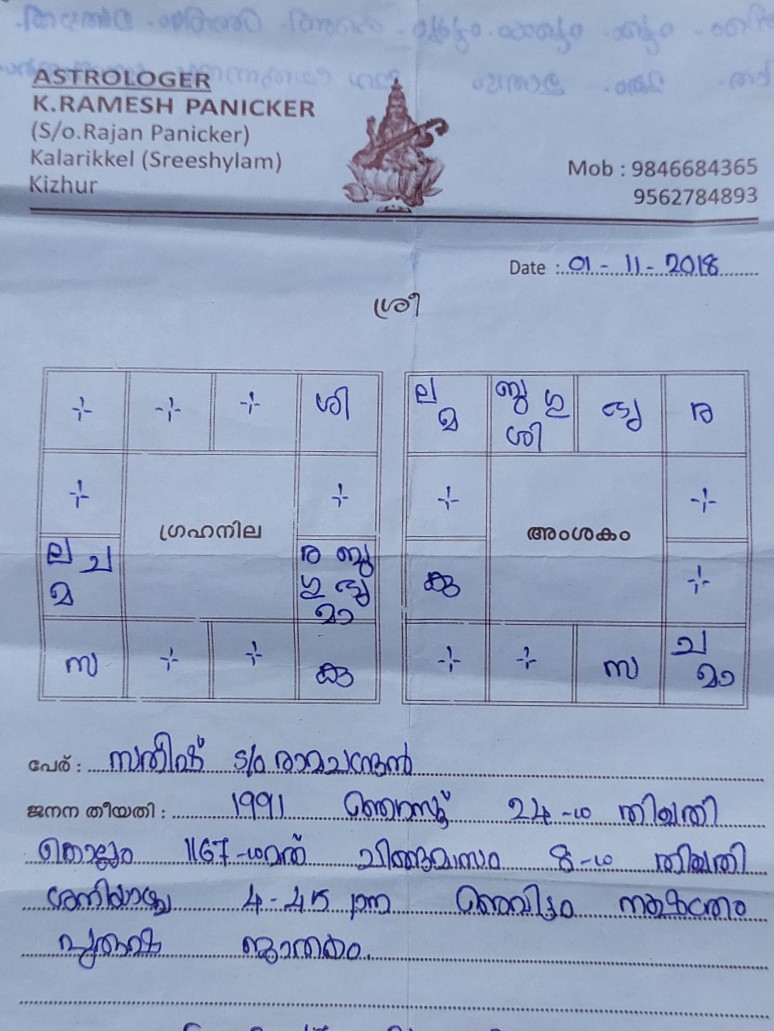 ASTROLOGER
K.RAMESH PANICKER
(S/o.Rajan Panicker)
Kalarikkel (Sreeshylam)
Kizhur
Mob : 9846684365
9562784893
Date : 01 - 11 - 2018
ശ്രീ
ശി
ഗ്രഹനില
ല ച
മ
ര ബു
ഗു ശു
മാ
സ
കു
ല
മ
ബു ഗു
ശി
ശു
ര
അംശകം
കു
സ
ച
മാ
പേര് : സതീഷ് S/o രാമചന്ദ്രൻ
ജനന തീയതി : 1991 ആഗസ്റ്റ് 24-ാം തിയ്യതി
കൊല്ലം 1167-ാമത് ചിങ്ങമാസം 8-ാം തിയ്യതി
ശനിയാഴ്ച 4-45 pm അവിട്ടം നക്ഷത്രം
പുരുഷ ജാതകം.